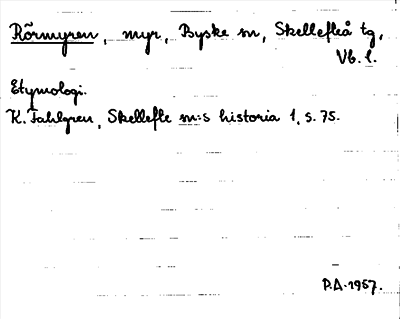 Rörmyren, myr, Byske sn, Skellefteå tg,
Vb. l.
Etymologi.
K. Fahlgren, Skellefte sn:s historia 1, s. 75.
P.A. 1957.